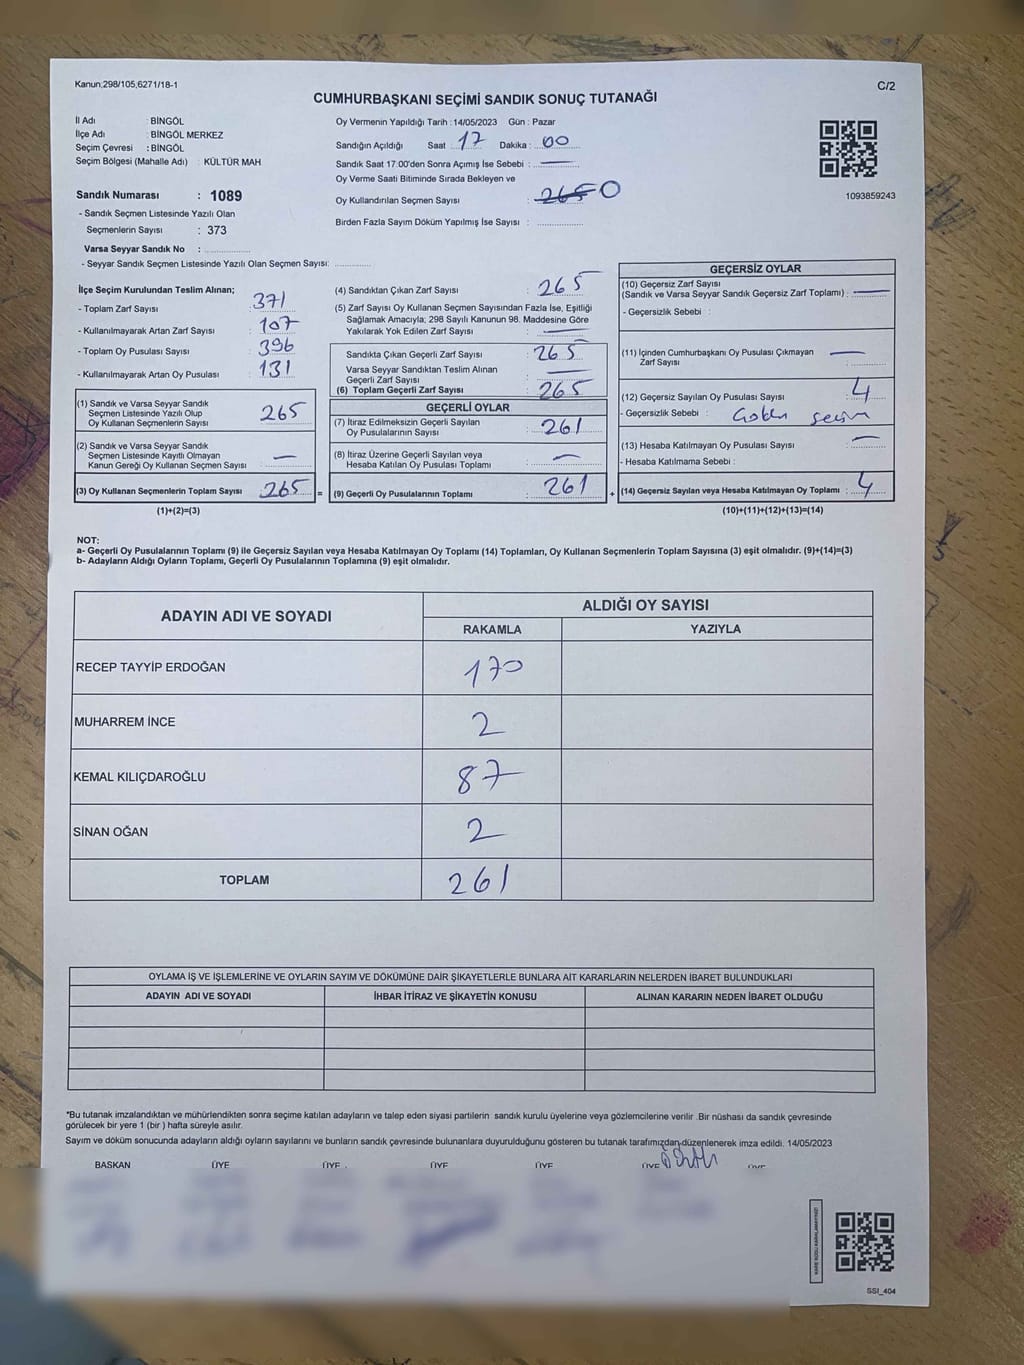 Kanun,298/105,6271/18-1
C/2
CUMHURBAŞKANI SEÇİMİ SANDIK SONUÇ TUTANAĞI
İl Adı : BİNGÖL
İlçe Adı : BİNGÖL MERKEZ
Seçim Çevresi : BİNGÖL
Seçim Bölgesi (Mahalle Adı) : KÜLTÜR MAH
Sandık Numarası : 1089
- Sandık Seçmen Listesinde Yazılı Olan
Seçmenlerin Sayısı : 373
Varsa Seyyar Sandık No :
- Seyyar Sandık Seçmen Listesinde Yazılı Olan Seçmen Sayısı:
Oy Vermenin Yapıldığı Tarih : 14/05/2023 Gün : Pazar
Sandığın Açıldığı Saat 17 Dakika : 00
Sandık Saat 17:00'den Sonra Açımış İse Sebebi : —
Oy Verme Saati Bitiminde Sırada Bekleyen ve
Oy Kullandırılan Seçmen Sayısı : 265 0
Birden Fazla Sayım Döküm Yapılmış İse Sayısı :
1093859243
İlçe Seçim Kurulundan Teslim Alınan;
- Toplam Zarf Sayısı : 371
- Kullanılmayarak Artan Zarf Sayısı : 107
- Toplam Oy Pusulası Sayısı : 396
- Kullanılmayarak Artan Oy Pusulası : 131
(1) Sandık ve Varsa Seyyar Sandık
Seçmen Listesinde Yazılı Olup
Oy Kullanan Seçmenlerin Sayısı : 265
(2) Sandık ve Varsa Seyyar Sandık
Seçmen Listesinde Kayıtlı Olmayan
Kanun Gereği Oy Kullanan Seçmen Sayısı : —
(3) Oy Kullanan Seçmenlerin Toplam Sayısı : 265 =
(1)+(2)=(3)
(4) Sandıktan Çıkan Zarf Sayısı : 265
(5) Zarf Sayısı Oy Kullanan Seçmen Sayısından Fazla İse, Eşitliği
Sağlamak Amacıyla; 298 Sayılı Kanunun 98. Maddesine Göre
Yakılarak Yok Edilen Zarf Sayısı : —
Sandıkta Çıkan Geçerli Zarf Sayısı : 265
Varsa Seyyar Sandıktan Teslim Alınan
Geçerli Zarf Sayısı : —
(6) Toplam Geçerli Zarf Sayısı : 265
GEÇERLİ OYLAR
(7) İtiraz Edilmeksizin Geçerli Sayılan
Oy Pusulalarının Sayısı : 261
(8) İtiraz Üzerine Geçerli Sayılan veya
Hesaba Katılan Oy Pusulası Toplamı : —
(9) Geçerli Oy Pusulalarının Toplamı : 261 +
GEÇERSİZ OYLAR
(10) Geçersiz Zarf Sayısı
(Sandık ve Varsa Seyyar Sandık Geçersiz Zarf Toplamı) : —
- Geçersizlik Sebebi :
(11) İçinden Cumhurbaşkanı Oy Pusulası Çıkmayan
Zarf Sayısı : —
(12) Geçersiz Sayılan Oy Pusulası Sayısı : 4
- Geçersizlik Sebebi : seçim
(13) Hesaba Katılmayan Oy Pusulası Sayısı : —
- Hesaba Katılmama Sebebi :
(14) Geçersiz Sayılan veya Hesaba Katılmayan Oy Toplamı : 4
(10)+(11)+(12)+(13)=(14)
NOT:
a- Geçerli Oy Pusulalarının Toplamı (9) ile Geçersiz Sayılan veya Hesaba Katılmayan Oy Toplamı (14) Toplamları, Oy Kullanan Seçmenlerin Toplam Sayısına (3) eşit olmalıdır. (9)+(14)=(3)
b- Adayların Aldığı Oyların Toplamı, Geçerli Oy Pusulalarının Toplamına (9) eşit olmalıdır.
ADAYIN ADI VE SOYADI
ALDIĞI OY SAYISI
RAKAMLA YAZIYLA
RECEP TAYYİP ERDOĞAN 170
MUHARREM İNCE 2
KEMAL KILIÇDAROĞLU 87
SİNAN OĞAN 2
TOPLAM 261
OYLAMA İŞ VE İŞLEMLERİNE VE OYLARIN SAYIM VE DÖKÜMÜNE DAİR ŞİKAYETLERLE BUNLARA AİT KARARLARIN NELERDEN İBARET BULUNDUKLARI
ADAYIN ADI VE SOYADI İHBAR İTİRAZ VE ŞİKAYETİN KONUSU ALINAN KARARIN NEDEN İBARET OLDUĞU
*Bu tutanak imzalandıktan ve mühürlendikten sonra seçime katılan adayların ve talep eden siyasi partilerin sandık kurulu üyelerine veya gözlemcilerine verilir .Bir nüshası da sandık çevresinde
görülecek bir yere 1 (bir ) hafta süreyle asılır.
Sayım ve döküm sonucunda adayların aldığı oyların sayılarını ve bunların sandık çevresinde bulunanlara duyurulduğunu gösteren bu tutanak tarafımızdan düzenlenerek imza edildi. 14/05/2023
BAŞKAN ÜYE ÜYE ÜYE ÜYE ÜYE ÜYE
KARE KODU KARALAMAYINIZ!
SSI_404